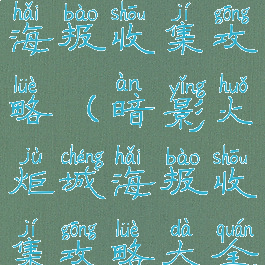 hǎi bào shōu jí gōng
海报收集攻
lüè àn yǐng huǒ
略（暗影火
jù chéng hǎi bào shōu
炬城海报收
jí gōng lüè dà quán
集攻略大全